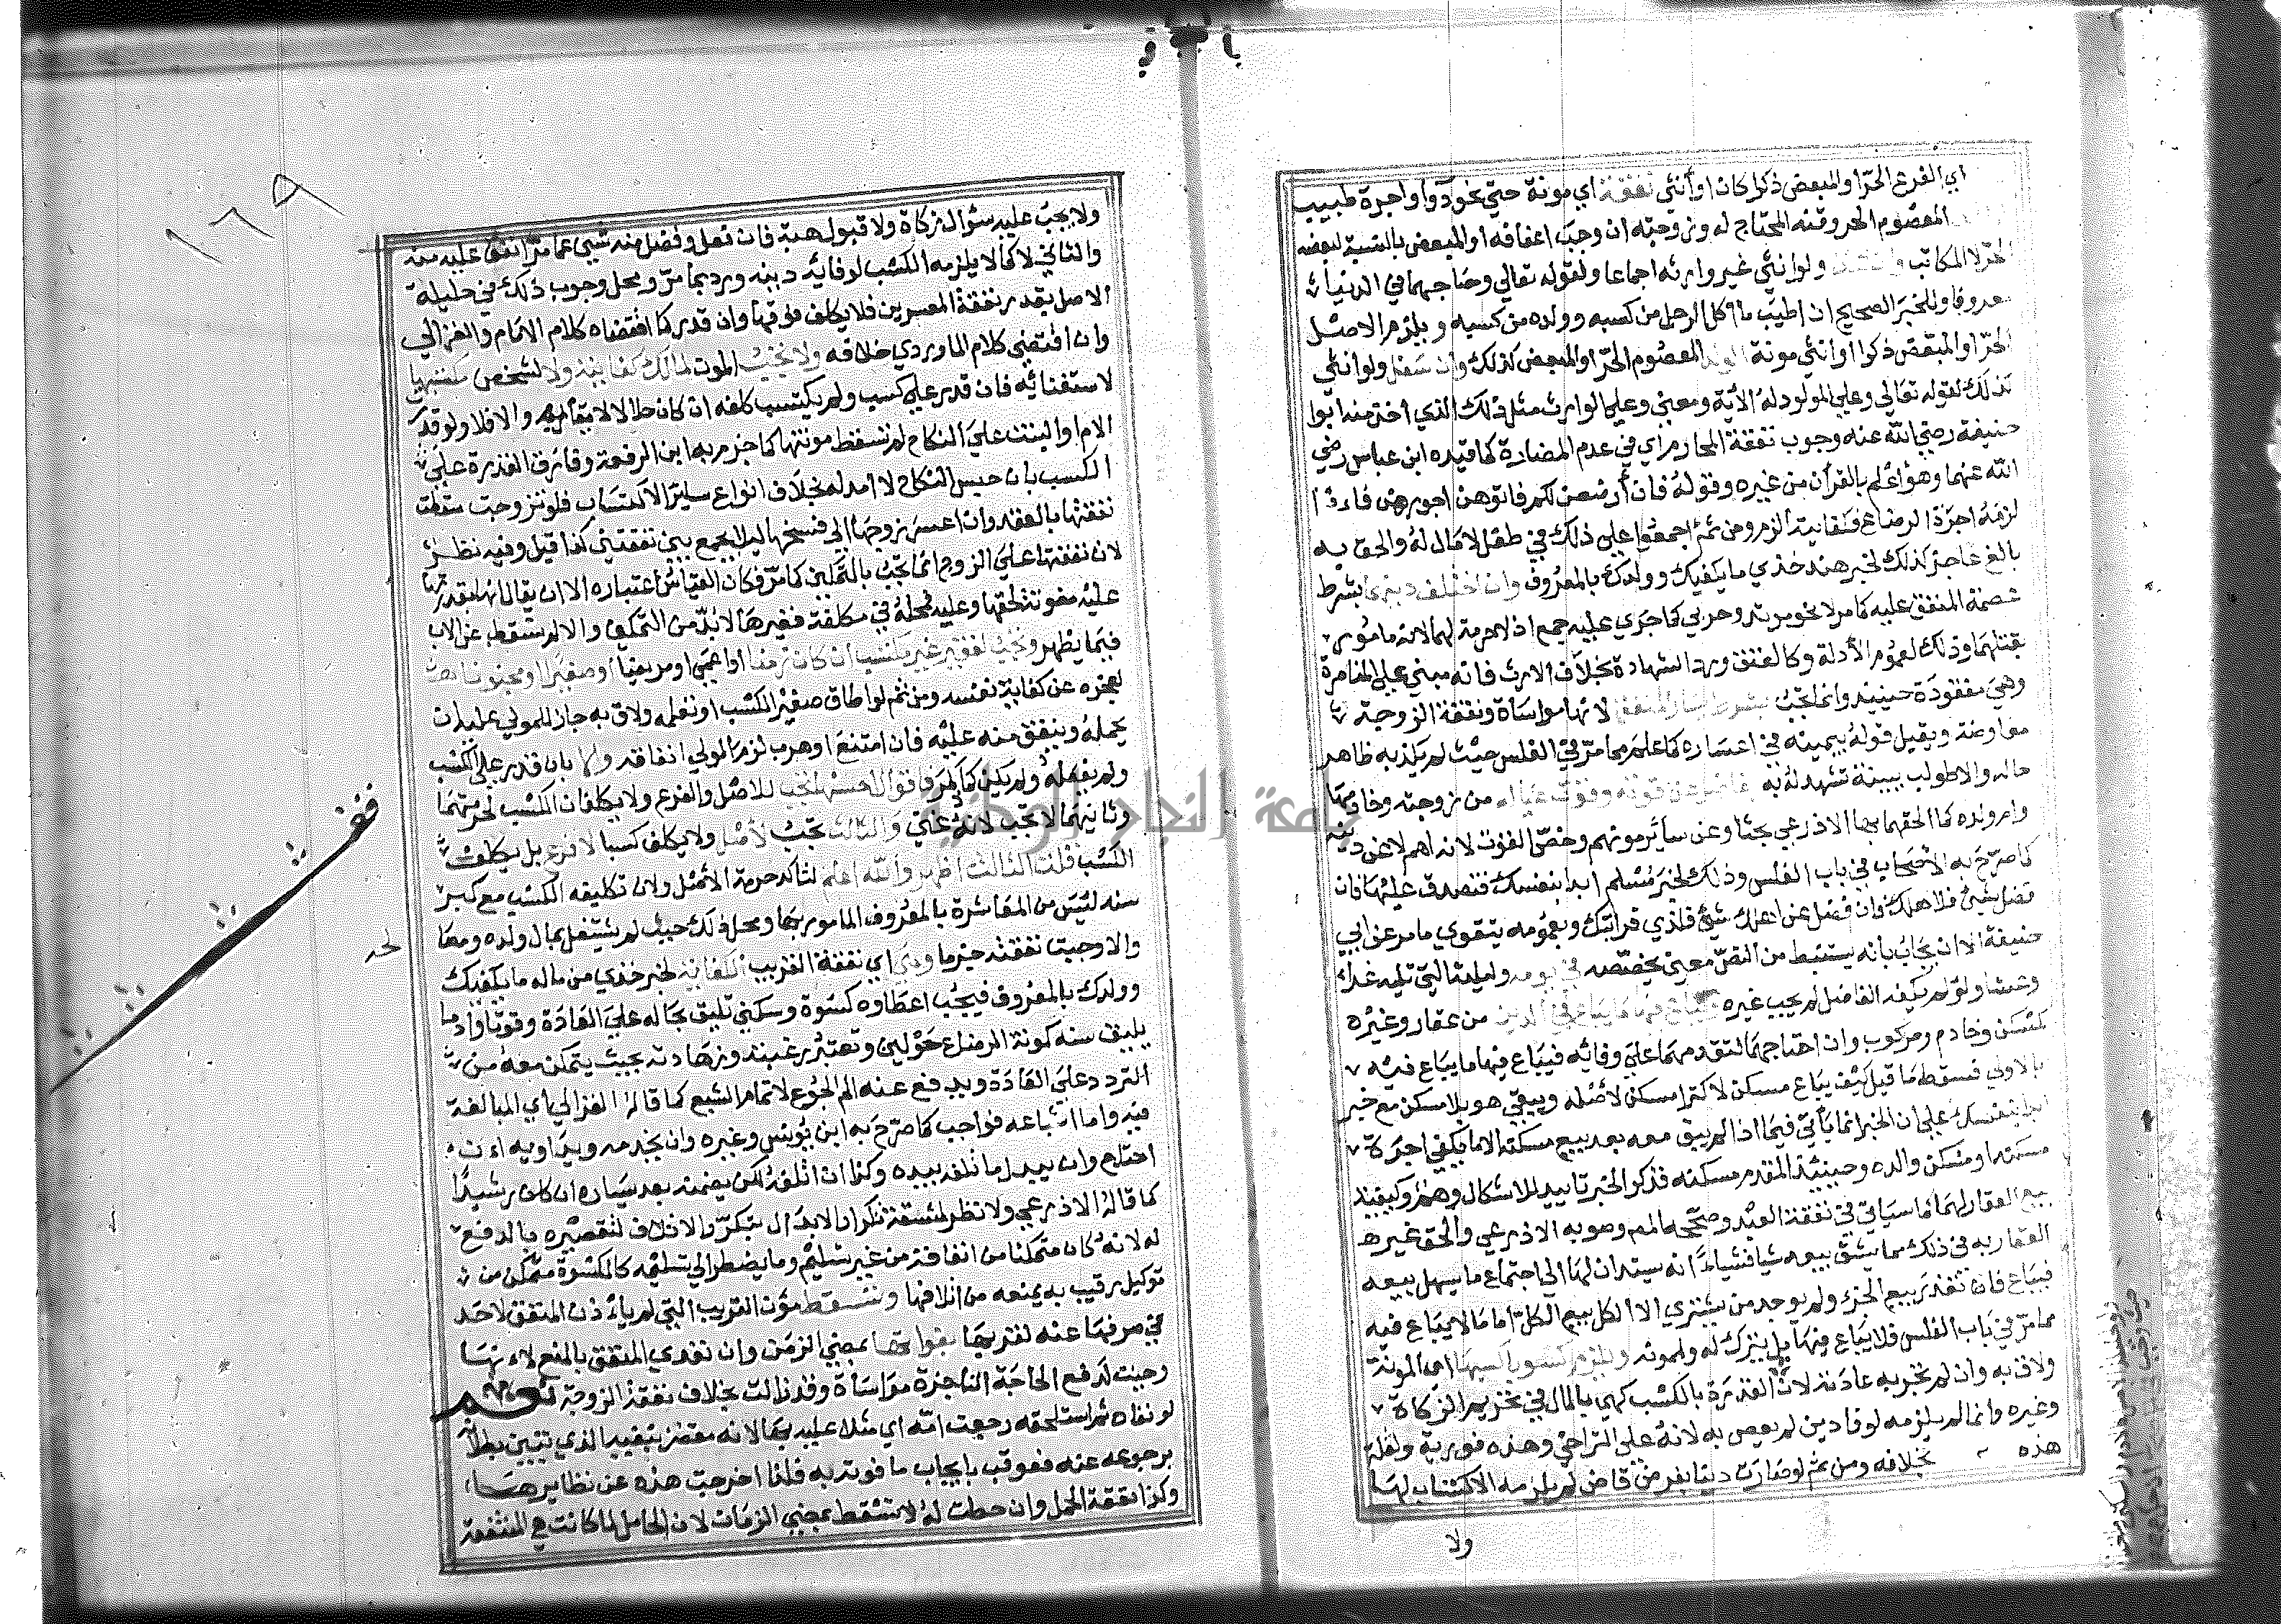 اي الفرع الحر او المبعض ذكرا كان او أنثي نفقة اي مونة حتي نحو دوا واجرة طبيب
المعصوم الحر وقنه المحتاج له وزوجته ان وجب اعفافه او المبعض بالنسبة لبعضه
الحر لا المكاتب ولو انثي غير وارثه اجماعا ولقوله تعالي وصاحبهما في الدنيا
معروفا وللخبر الصحيح ان اطيب ما اكل الرجل من كسبه وولده من كسبه ويلزم الاصل
الحر او المبعض ذكرا او انثي مونة الولد المعصوم الحر او المبعض كذلك وان سفل ولو انثي
كذلك لقوله تعالي وعلي المولود له الآية ومعني وعلي الوارث مثل ذلك الذي اخذ منه ابوا
حنيفة رضي الله عنه وجوب نفقة المحارم اي في عدم المضارة كما قيده ابن عباس رضي
الله عنهما وهو اعلم بالقرآن من غيره وقوله فان أرضعن لكم فاتوهن اجورهن فاذا
لزمه اجرة الرضاع فكفايته الزم ومن ثم اجمعوا علي ذلك في طفل لا مال له والحق به
بالغ عاجز كذلك لخبر هند خذي ما يكفيك وولدك بالمعروف وان اختلف دينهما بشرط
عصمة المنفق عليه كما مر لا نحو مرتد وحربي كما جري عليه جمع اذ لا حرمة لهما لانه مامور
بقتلهما وذلك لعموم الأدلة وكالعتق ورد الشهادة بخلاف الارث فانه مبني علي المناصرة
وهي مفقودة حينيذ وانما تجب بشرط يسار المنفق لانها مواساة ونفقة الزوجية
معاوضة ويقبل قوله بيمينه في اعساره كما علم مما مر في الفلس حيث لم يكذبه ظاهر
حاله والا طولب ببينة تشهد له به بفاضل عن قوته وقوت عياله من زوجته وخادمها
وام ولده كما الحقهما بها الاذرعي بحثا وعن ساير مونهم وخص القوت لانه اهم لا عن دينه
كما صرح به الاصحاب في باب الفلس وذلك لخبر مسلم ابدا بنفسك فتصدق عليها فان
فضل شيئ فلاهلك وان فضل عن اهلك شيئ فلذي قرابتك وبعمومه يتقوي ما مر عن ابي
حنيفة الا ان يجاب بأنه يستنبط من النص معني يخصصه في يومه وليلته التي تليه غداء
وعشا ولو لم يكفه الفاضل لم يجب غيره ويباع فيها ما يباع في الدين من عقار وغيره
كمسكن وخادم ومركوب وان احتاجهما لتقدمهما علي وفائه فيباع فيها ما يباع فيه
بالاولي فسقط ما قيل كيف يباع مسكن لاكترا مسكن لأصله ويبقي هو بلا مسكن مع خبر
ابدا بنفسك علي ان الخبر انما يأتي فيما اذا لم يبق معه بعد بيع مسكنه الا ما يكفي اجرة
مسكنه او مسكن والده وحينيذ المقدم مسكنه فذكر الخبر تاييد للاشكال وهم وكيفية
بيع العقار لهما كما سياتي في نفقة العبد وصححه المص وصوبه الاذرعي والحق غير
العقار به في ذلك مما يشق بيعه شيا فشياء انه يستدان لها الي اجتماع ما يسهل بيعه
فيباع فان تعذر بيع الجزء ولم يوجد من يشتري الا الكل بيع الكل اما ما لا يباع فيه
مما مر في باب الفلس فلا يباع فيها بل يترك له ولممونه ويلزم كسوبا كسبها اي المونة
ولاق به وان لم تجر به عادته لان القدرة بالكسب كهي بالمال في تحريم الزكاة
وغيره وانما لم يلزمه لوفا دين لم يعص به لانه علي التراخي وهذه فورية ولقلة
هذه بخلافه ومن ثم لو صارت دينا بفرض قاض لم يلزمه الاكتساب لها
ولا
١٦٩
ولا يجب عليه سؤال زكاة ولا قبول هبة فان فعل وفضل منه شيئ عما مر انفق عليه منه
والثاني لا كما لا يلزمه الكسب لوفائه دينه ورد بما مر ومحل وجوب ذلك في حليلة
الاصل بقدر نفقة المعسرين فلا يكلف فوقها وان قدر كما اقتضاه كلام الامام والغزالي
وان اقتضي كلام الماوردي خلافه ولا تجب المون لمالك كفايته ولا لشخص مكتسبها
لاستغنائه فان قدر علي كسب ولم يكتسب كلفه ان كان حلالا لايقا به والا فلا ولو قدر
الام او البنت علي النكاح لم تسقط مونتها كما جزم به ابن الرفعة وفارق القدرة علي
الكسب بان حبس النكاح لا امد له بخلاف انواع ساير الاكتساب فلو تزوجت سقطت
نفقتها بالعقد وان اعسر زوجها الي فسخها ليلا يجمع بين نفقتين كذا قيل وفيه نظر
لان نفقتها علي الزوج انما تجب بالتمكين كما مر فكان القياس اعتباره الا ان يقال انها بقدرتها
عليه مفوتة لحقها وعليه فمحله في مكلفة فغيرها لا بد من التمكين والا لم تسقط عن الاب
فيما يظهر وتجب لفقير غير مكتسب ان كان زمنا او اعمي او مريضا او صغيرا او مجنونا
لعجزه عن كفاية نفسه ومن ثم لو اطاق صغير الكسب او تعلمه ولاق به جاز للمولي عليه ان
يحمله وينفق منه عليه فان امتنع او هرب لزم المولي انفاقه والا بان قدر علي الكسب
ولم يفعله ولم يكن كما ذكر فاقوال احسنها تجب للاصل والفرع ولا يكلفان الكسب لحرمتهما
وثانيهما لا تجب لانه غني والثالث تجب لأصل ولا يكلف كسبا لا فرع بل يكلف
الكسب قلت الثالث اظهر والله اعلم لتأكد حرمة الأصل ولان تكليفه الكسب مع كبر
سنه ليس من المعاشرة بالمعروف المامور بها ومحل ذلك حيث لم يشتغل بمال ولده ومصا
لحه
والا وجبت نفقته جزما وهي اي نفقة القريب الكفاية لخبر خذي من ماله ما يكفيك
وولدك بالمعروف فيجب اعطاوه كسوة وسكني تليق بحاله علي العادة وقوتا وأدما
يليق سنه كمونة الرضاع حولين وتعتبر رغبته وزهادته بحيث يتمكن معه من
التردد علي العادة ويدفع عنه الم الجوع لا تمام الشبع كما قاله الغزالي اي المبالغة
فيه واما اشباعه فواجب كما صرح به ابن يونس وغيره وان يخدمه ويداويه ان
احتاج وان يبدل ما تلف بيده وكذا ان اتلفه لكن يضمنه بعد يساره ان كان رشيدا
كما قاله الاذرعي ولا نظر لمشقة تكرار الابدال بتكرر الاتلاف لتقصيره بالدفع
له لانه كان متمكنا من انفاقه من غير تسليم وما يضطر الي تسليمه كالكسوة متمكن من
توكيل رقيب به يمنعه من اتلافها وتسقط مؤن القريب التي لم يأذن المنفق لاحد
في صرفها عنه لقريبه بفواتها بمضي الزمن وان تعدي المنفق بالمنع لانها
وجبت لدفع الحاجة الناجزة مواساة وقد زالت بخلاف نفقة الزوجة نعم
لو نفاه ثم استلحقه رجعت امه اي مثلا عليه بها لانه مقصر بنفيه الذي تبين بطلانه
برجوعه عنه فعوقب بايجاب ما فوته به فلذا خرجت هذه عن نظايرها
وكذا نفقة الحمل وان جعلت له لا تسقط بمضي الزمان لان الحامل لما كانت هي المنتفعة
جامعة النجاح الوطنية